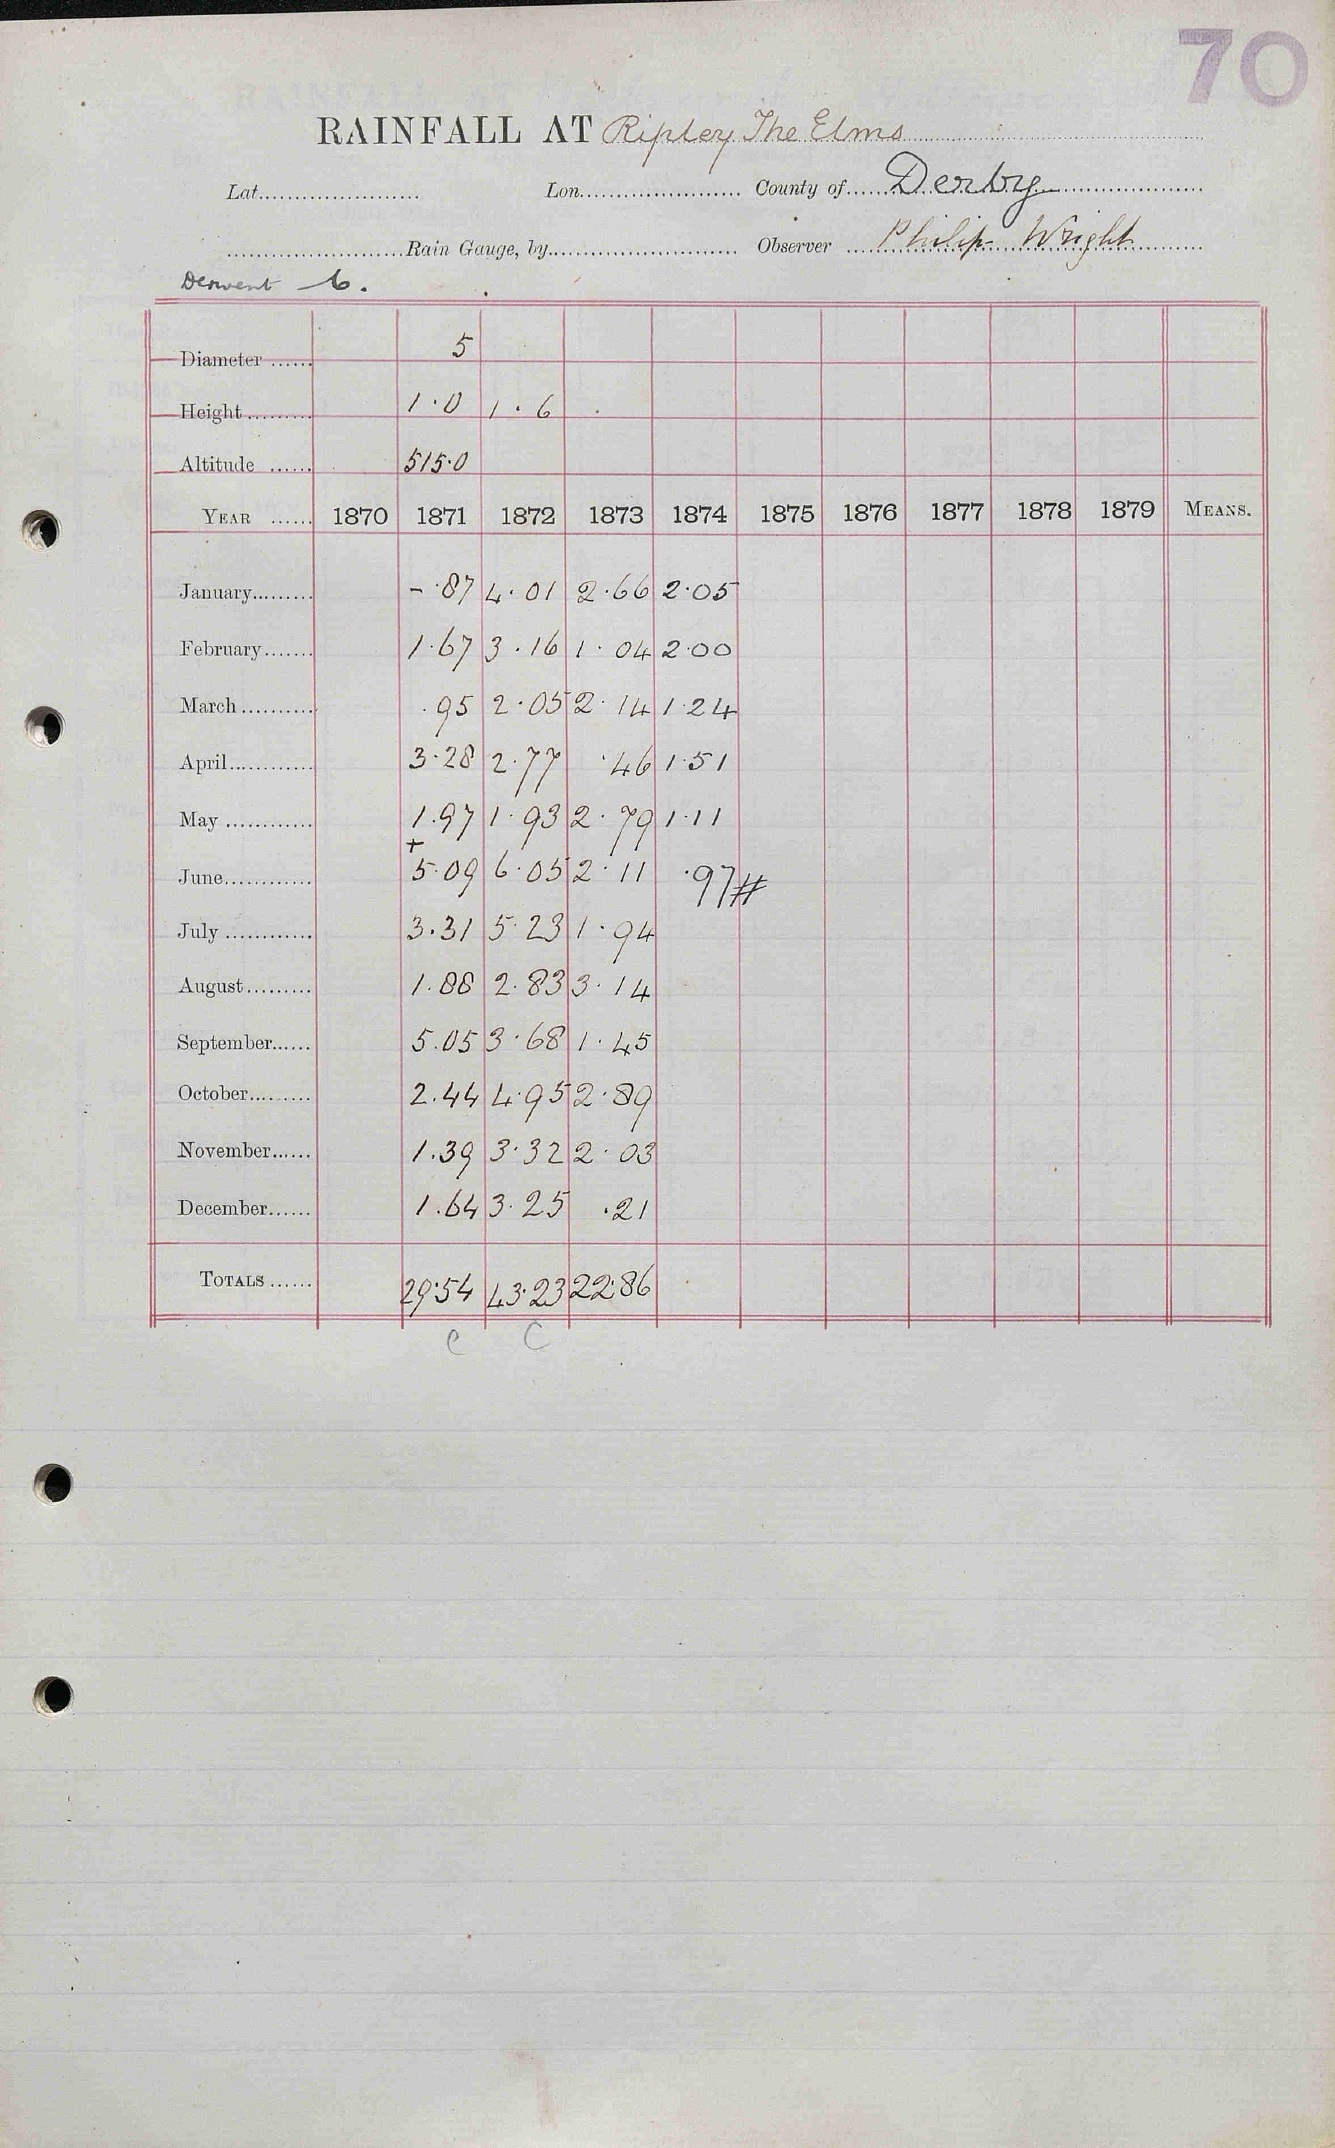 70
RAINFALL AT Ripley The Elms
Lat. Lon. County of Derby
Rain Gauge, by Observer Philip Wright
Derwent 6.
Diameter 5
Height 1.0 1.6
Altitude 515.0
YEAR 1870 1871 1872 1873 1874 1875 1876 1877 1878 1879 MEANS.
January - .87 4.01 2.66 2.05
February 1.67 3.16 1.04 2.00
March .95 2.05 2.14 1.24
April 3.28 2.77 .46 1.51
May 1.97 1.93 2.79 1.11
+
June 5.09 6.05 2.11 .97#
July 3.31 5.23 1.94
August 1.88 2.83 3.14
September 5.05 3.68 1.45
October 2.44 4.95 2.89
November 1.39 3.32 2.03
December 1.64 3.25 .21
TOTALS 29.54 43.23 22.86
c C